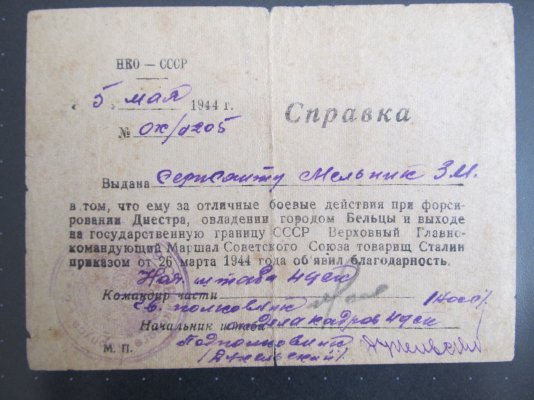 НКО — СССР
5 мая 1944 г.
Справка
№ ох/0205
Выдана сержанту Мельник З.М.
в том, что ему за отличные боевые действия при форси-
ровании Днестра, овладении городом Бельцы и выходе
на государственную границу СССР Верховный Главно-
командующий Маршал Советского Союза товарищ Сталин
приказом от 26 марта 1944 года об'явил благодарность.
Нач. штаба
Командир части
полковник
Начальник штаба отдела кадров
Подполковник
М. П.